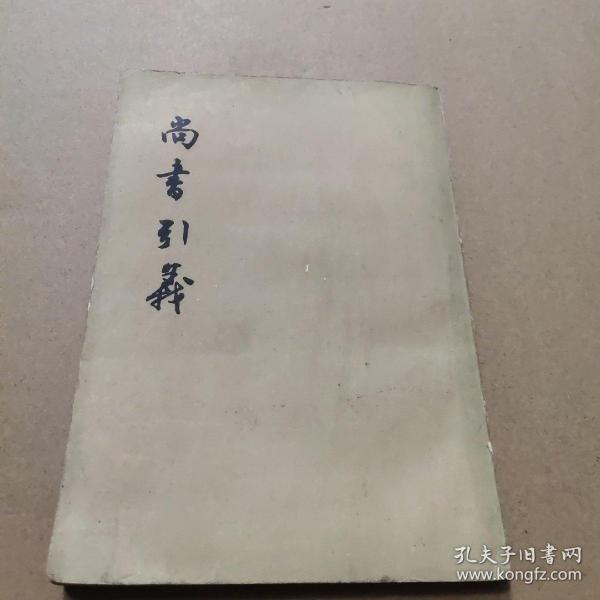 尚書引義
孔夫子旧書网
www.kongfz.com